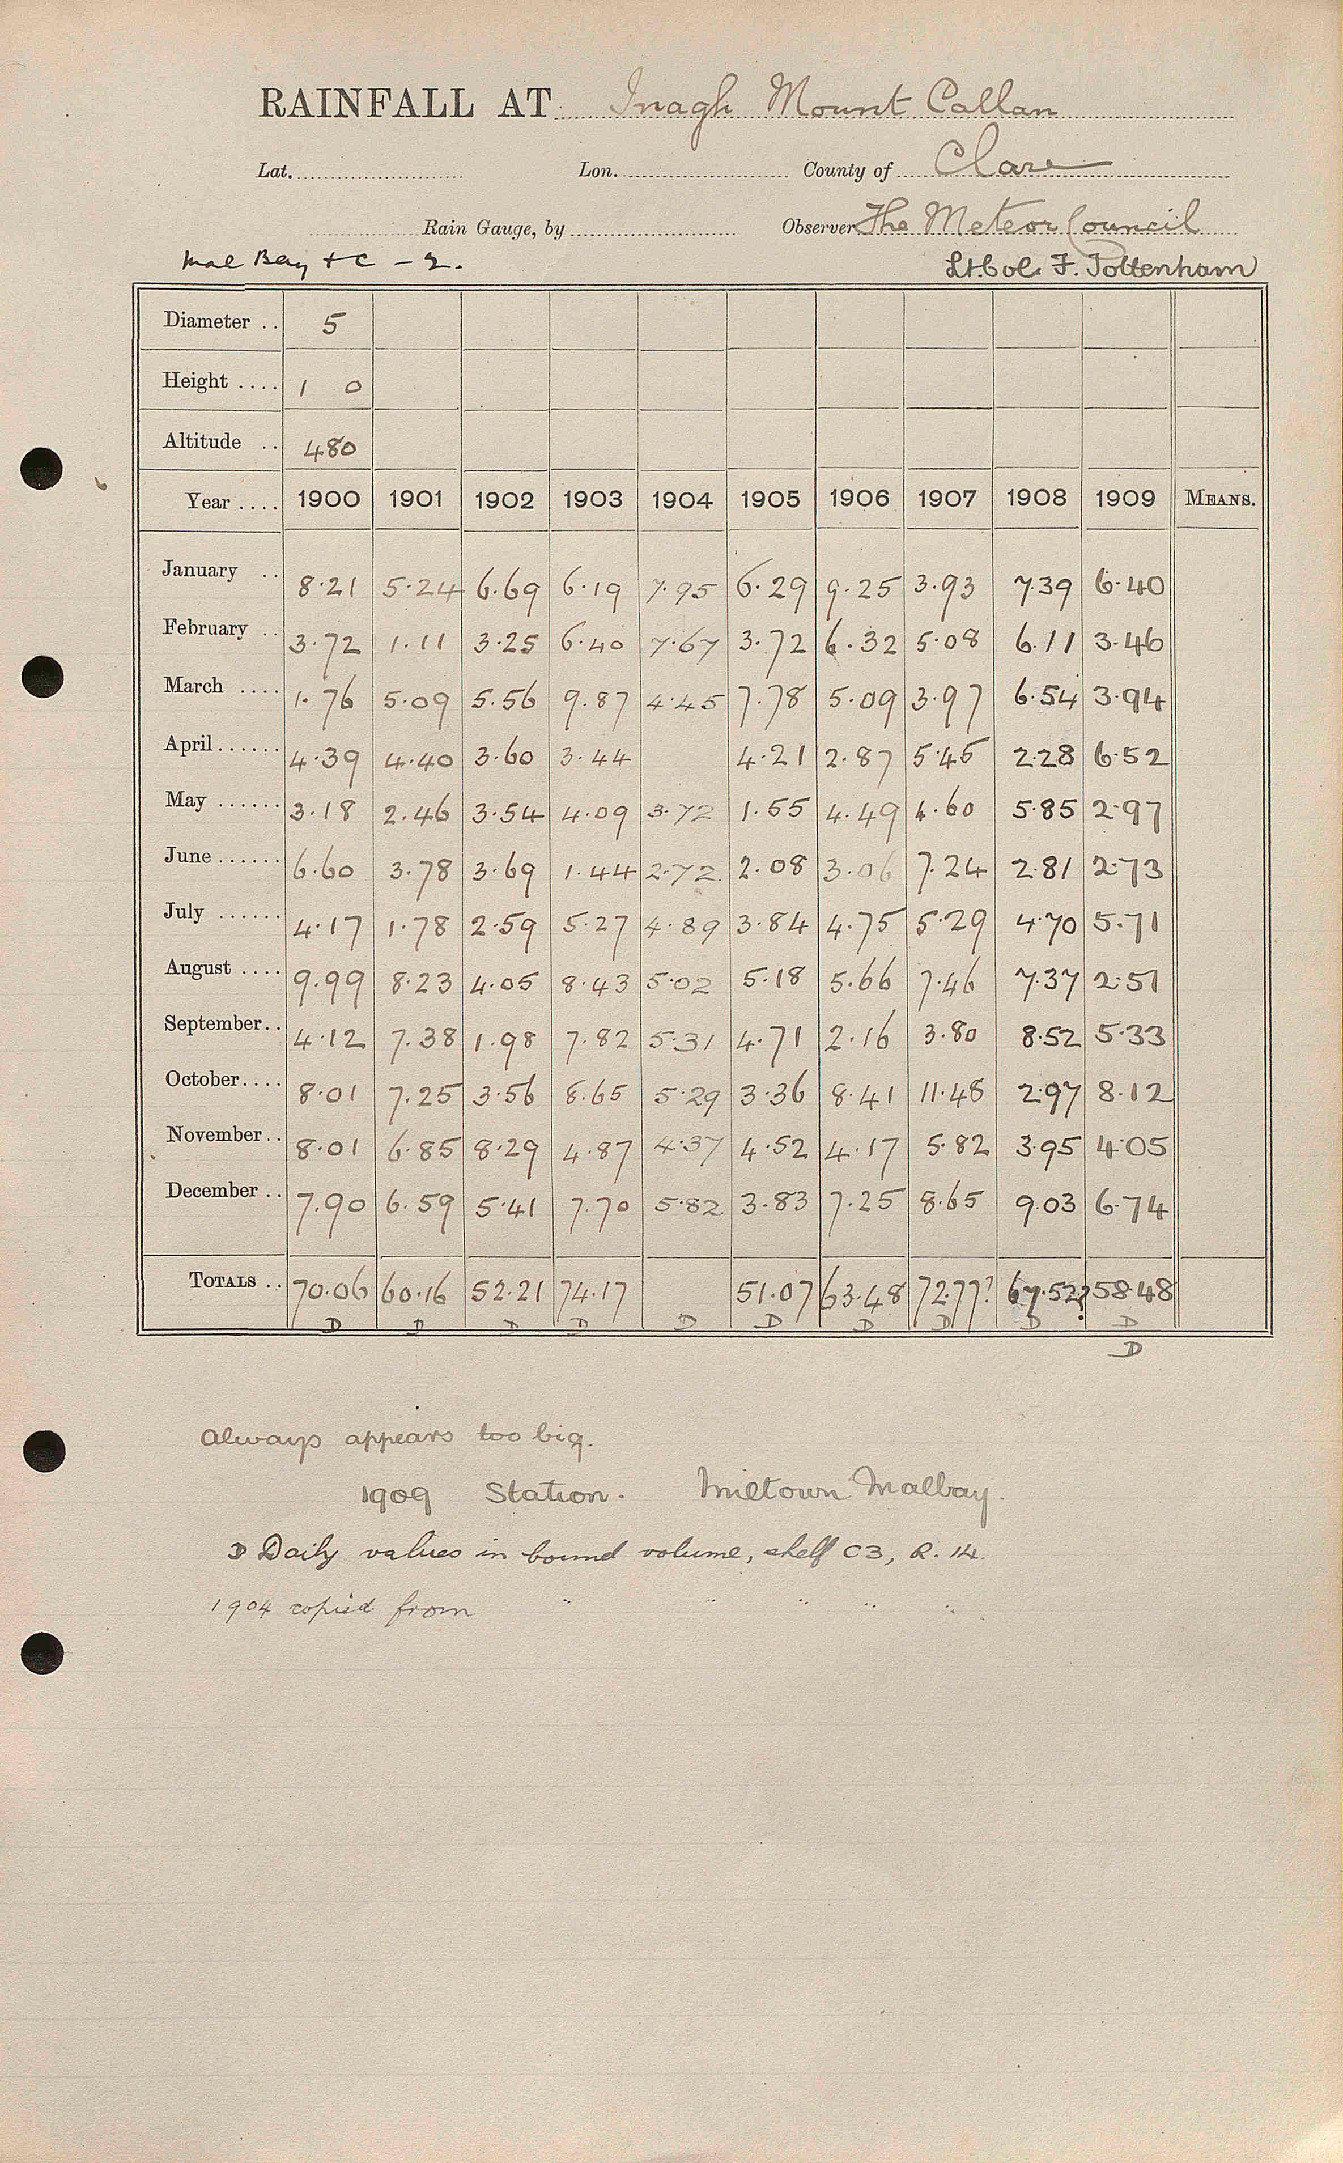 RAINFALL AT Inagh Mount Callan
Lat. Lon. County of Clare
Rain Gauge, by Observer The Meteor Council
Mal Bay + C - 2. Lt. Col. F. Tottenham
Diameter .. 5
Height .... 1 0
Altitude .. 480
Year .... 1900 1901 1902 1903 1904 1905 1906 1907 1908 1909 MEANS.
January .. 8.21 5.24 6.69 6.19 7.95 6.29 9.25 3.93 7.39 6.40
February .. 3.72 1.11 3.25 6.40 7.67 3.72 6.32 5.08 6.11 3.46
March .... 1.76 5.09 5.56 9.87 4.45 7.78 5.09 3.97 6.54 3.94
April ...... 4.39 4.40 3.60 3.44 4.21 2.87 5.45 2.28 6.52
May ...... 3.18 2.46 3.54 4.09 3.72 1.55 4.49 4.60 5.85 2.97
June ...... 6.60 3.78 3.69 1.44 2.72 2.08 3.06 7.24 2.81 2.73
July ...... 4.17 1.78 2.59 5.27 4.89 3.84 4.75 5.29 4.70 5.71
August .... 9.99 8.23 4.05 8.43 5.02 5.18 5.66 7.46 7.37 2.51
September .. 4.12 7.38 1.98 7.82 5.31 4.71 2.16 3.80 8.52 5.33
October .... 8.01 7.25 3.56 8.65 5.29 3.36 8.41 11.48 2.97 8.12
November .. 8.01 6.85 8.29 4.87 4.37 4.52 4.17 5.82 3.95 4.05
December .. 7.90 6.59 5.41 7.70 5.82 3.83 7.25 8.65 9.03 6.74
TOTALS .. 70.06 60.16 52.21 74.17 51.07 63.48 72.77? 67.52? 58.48
D D D D D D D D D D
D
Always appears too big.
1909 Station. Miltown Malbay.
D Daily values in bound volume, shelf C3, R. 14.
1904 copied from " " " " "